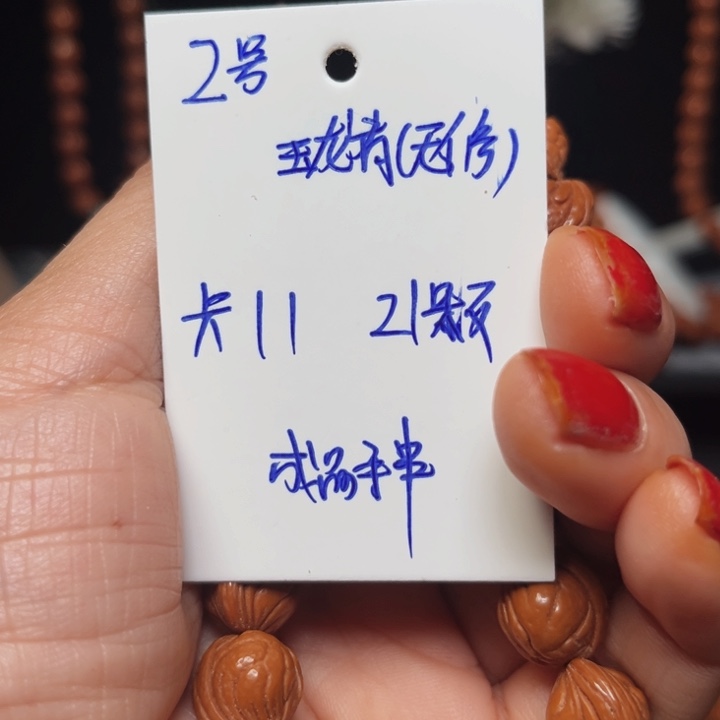 2号
玉龙青(无修)
卡11 21颗
成品手串